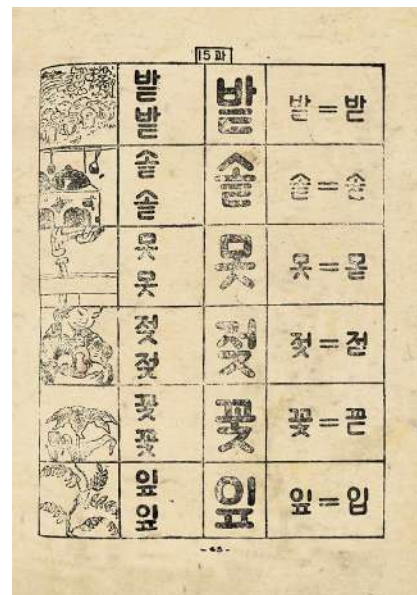 15과
밭
밭
밭
밭 = 받
솥
솥
솥
솥 = 솓
못
못
못
못 = 몯
젖
젖
젖
젖 = 젇
꽃
꽃
꽃
꽃 = 꼳
잎
잎
잎
잎 = 입